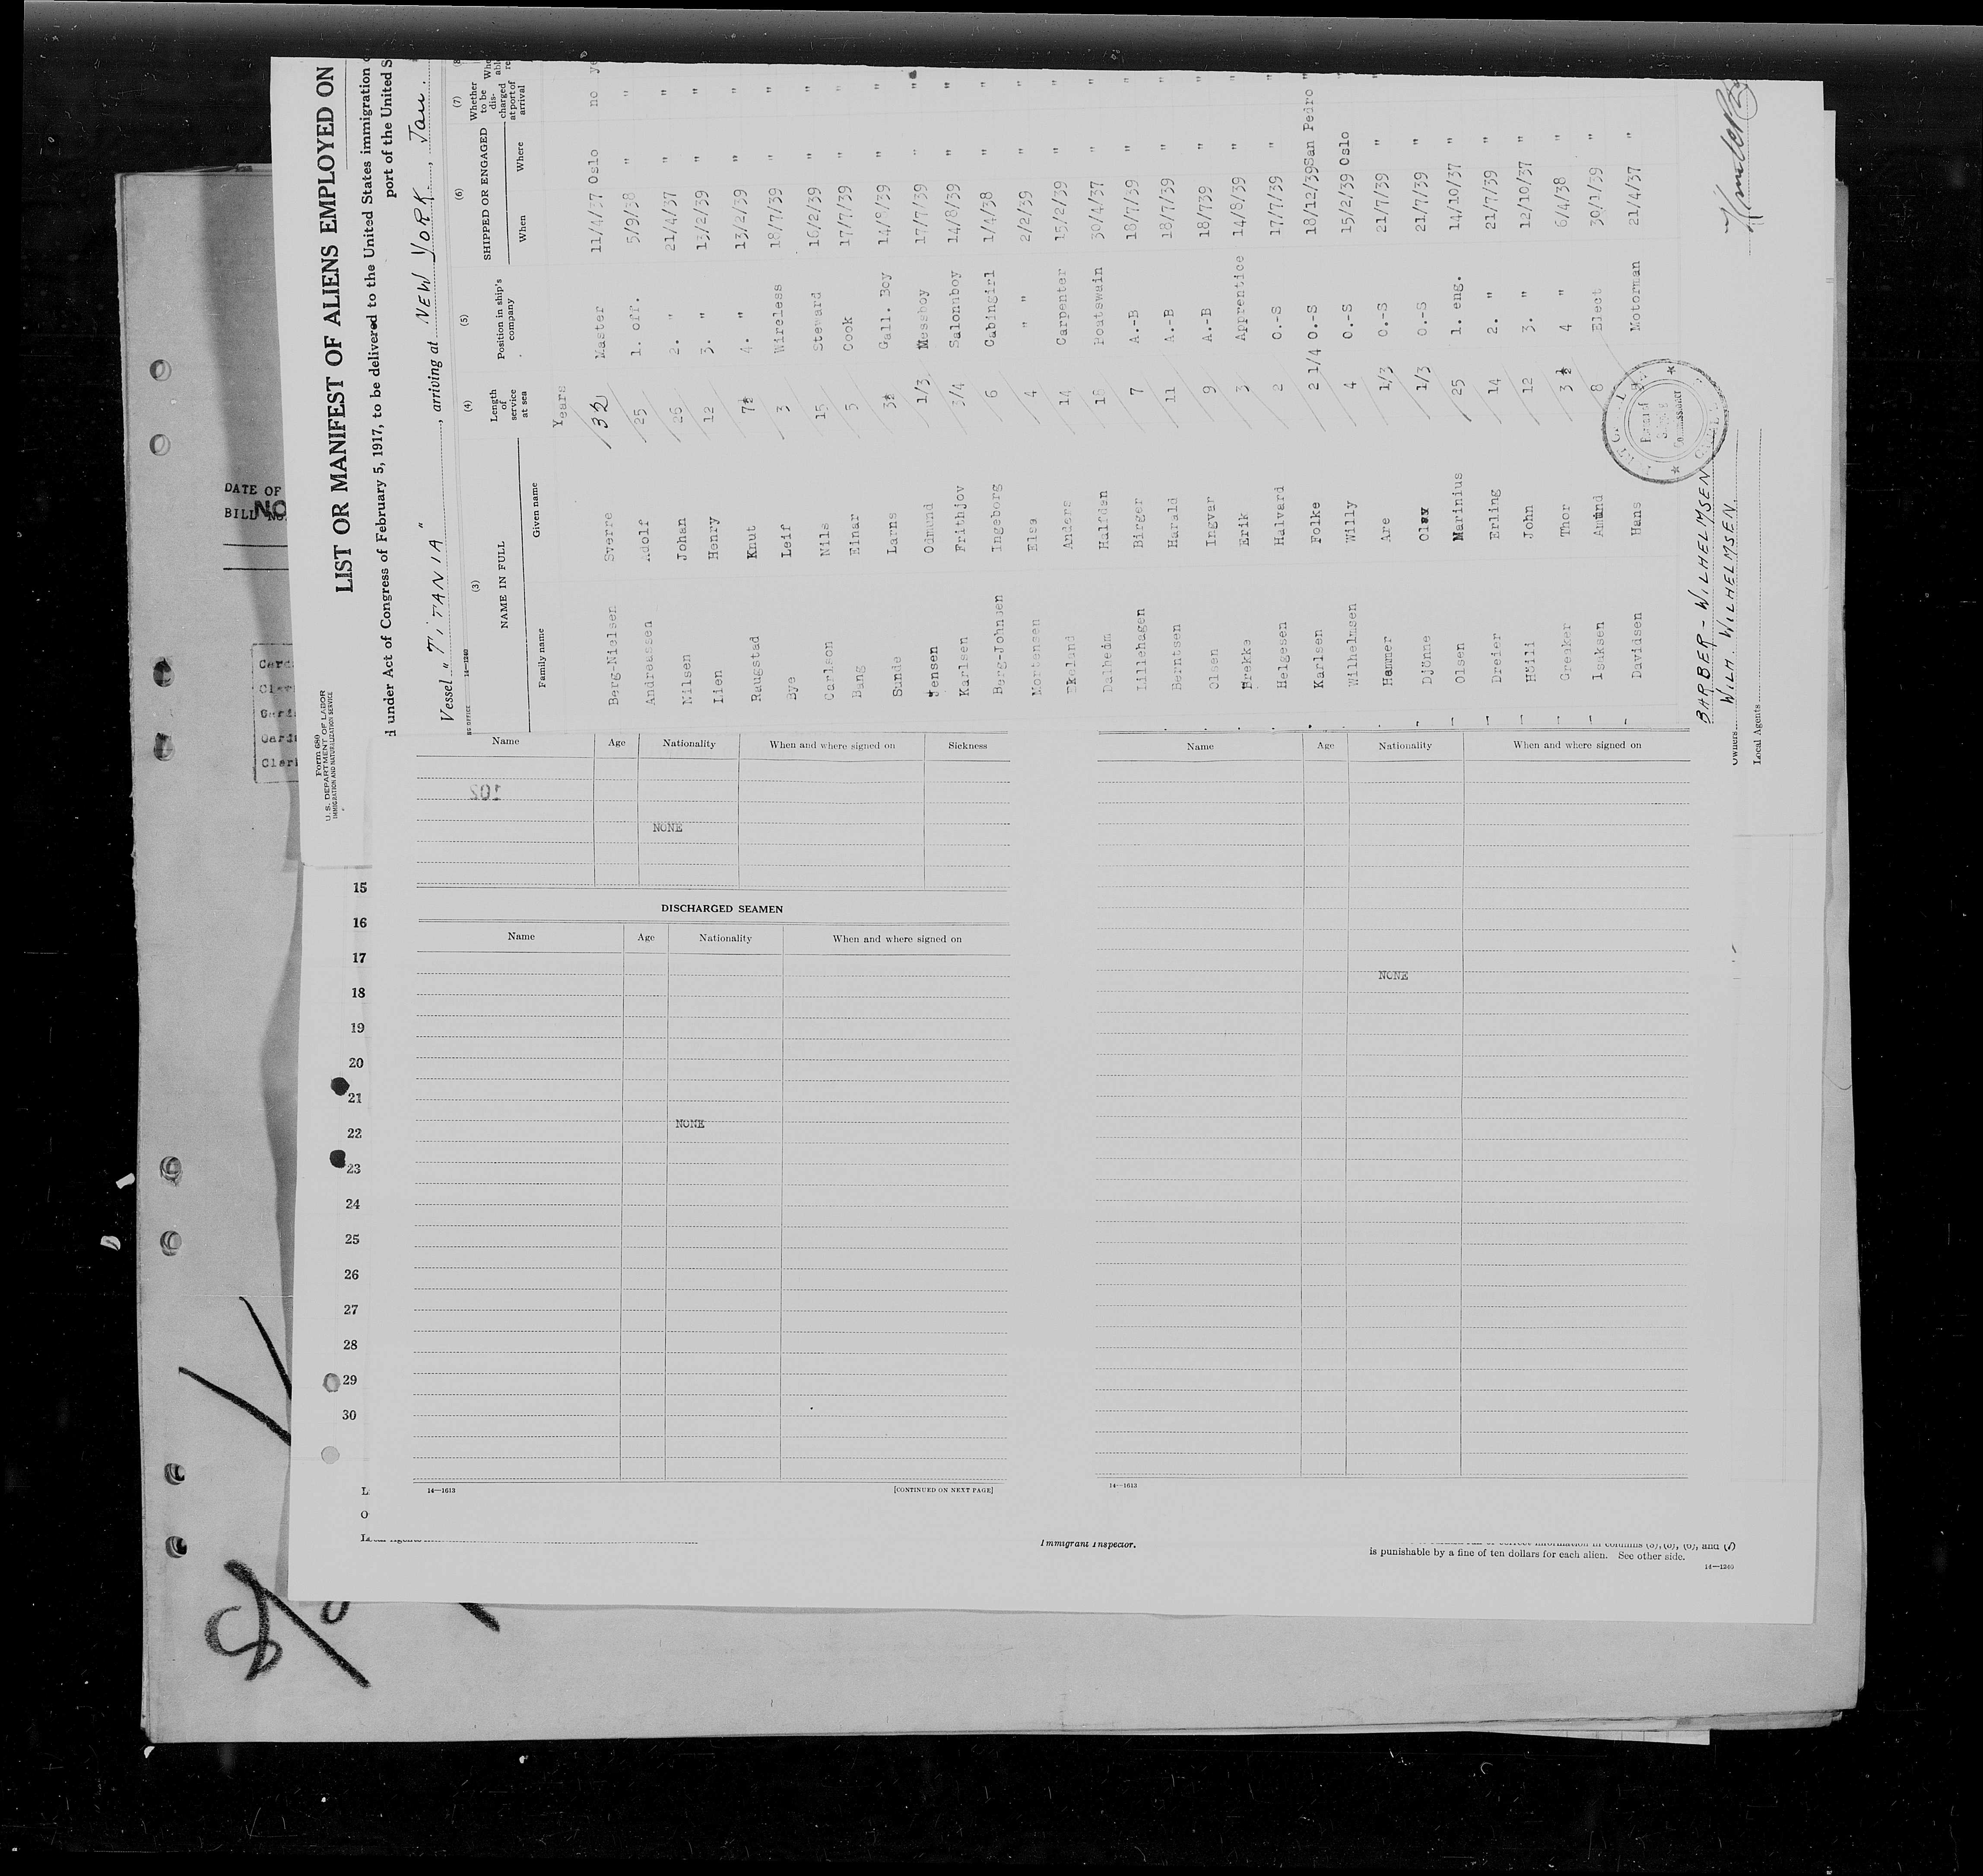 LIST OR MANIFEST OF ALIENS EMPLOYED ON
under Act of Congress of February 5, 1917, to be delivered to the United States immigration
port of the United S
Vessel "TITANIA", arriving at NEW YORK, Jan.
Form 680
U. S. DEPARTMENT OF LABOR
IMMIGRATION AND NATURALIZATION SERVICE
14—1240
(3) (4) (5) (6) (7)
NAME IN FULL Length of service at sea Position in ship's company SHIPPED OR ENGAGED Whether to be discharged at port of arrival
Family name Given name When Where
Years
Berg-Nielsen Sverre 32 Master 11/4/37 Oslo no
Andreassen Adolf 25 1. off. 5/9/38 " "
Nilsen Johan 26 2. " 21/4/37 " "
Lien Henry 12 3. " 13/2/39 " "
Raugstad Knut 7½ 4. " 13/2/39 " "
Bye Leif 3 Wireless 18/7/39 " "
Carlson Nils 15 Steward 16/2/39 " "
Bang Einar 5 Cook 17/7/39 " "
Sunde Larns 3½ Gall. Boy 14/8/39 " "
Jensen Odmund 1/3 Messboy 17/7/39 " "
Karlsen Frithjov 3/4 Salonnboy 14/8/39 " "
Berg-Johnsen Ingeborg 6 Cabingirl 1/4/38 " "
Mortensen Elsa 4 " " 2/2/39 " "
Ekelund Anders 14 Carpenter 15/2/39 " "
Dalheim Halfdan 18 Boatswain 30/4/37 " "
Lillehagen Birger 7 A.-B 18/7/39 " "
Berntsen Harald 11 A.-B 18/7/39 " "
Olsen Ingvar 9 A.-B 18/739 " "
Brekke Erik 3 Apprentice 14/8/39 " "
Helgesen Halvard 2 O.-S 17/7/39 " "
Karlsen Folke 2 1/4 O.-S 18/12/39 San Pedro "
Wilhelmsen Willy 4 O.-S 15/2/39 Oslo "
Hammer Are 1/3 O.-S 21/7/39 " "
Djönne Olav 1/3 O.-S 21/7/39 "
Olsen Marinius 25 1. eng. 14/10/37 "
Dreier Erling 14 2. " 21/7/39 "
Höili John 12 3. " 12/10/37 "
Grenker Thor 3 ½ 4 " 6/4/38 "
Isaksen Amund 8 Elect 30/1/39 "
Davidsen Hans Motorman 21/4/37 "
BARBER - WILHELMSEN
Owners WILH. WILHELMSEN.
Local Agents
DATE OF
BILL NO.
NO
Name Age Nationality When and where signed on Sickness
NONE
DISCHARGED SEAMEN
Name Age Nationality When and where signed on
NONE
14—1613 [CONTINUED ON NEXT PAGE]
Name Age Nationality When and where signed on
NONE
14—1613
15
16
17
18
19
20
21
22
23
24
25
26
27
28
29
30
Immigrant Inspector.
is punishable by a fine of ten dollars for each alien. See other side.
14—1240